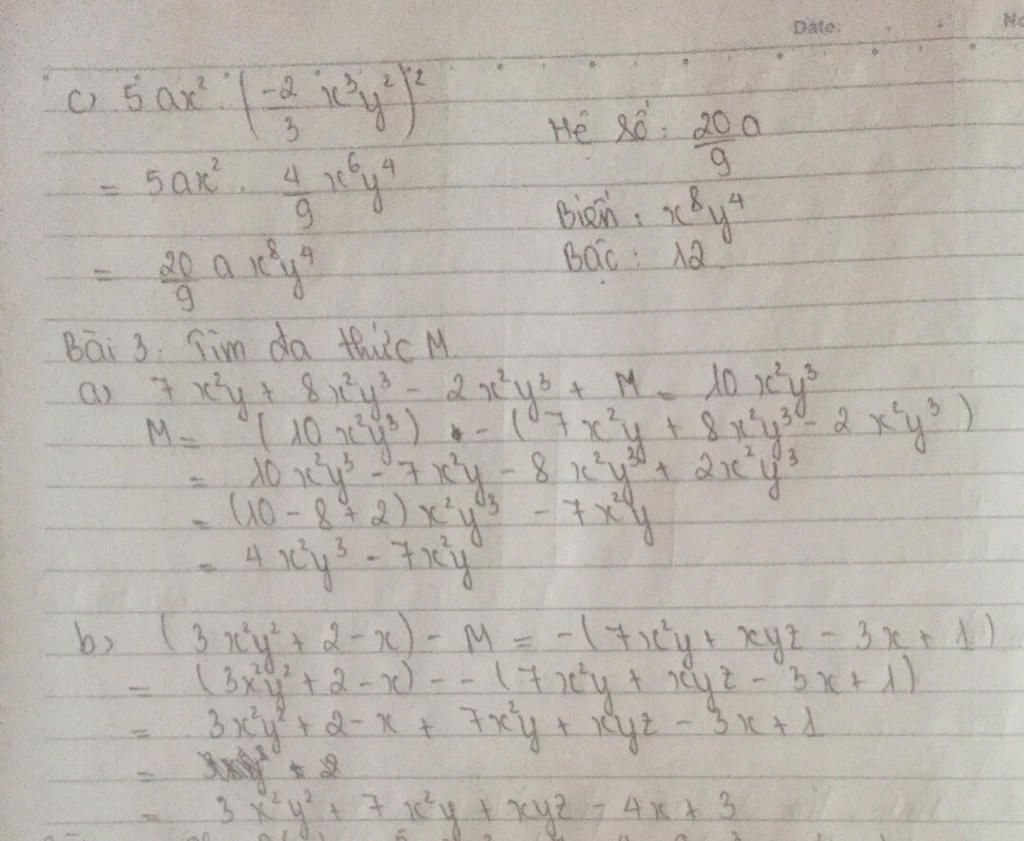 Date:
No
c) 5ax². (-2/3 x³y²)²
= 5ax². 4/9 x⁶y⁴
= 20/9 a x⁸y⁴
Hệ số: 20/9 a
Biến: x⁸y⁴
Bậc: 12
Bài 3. Tìm đa thức M.
a) 7x²y + 8x²y³ - 2x²y³ + M = 10x²y³
M = (10x²y³) - (7x²y + 8x²y³ - 2x²y³)
= 10x²y³ - 7x²y - 8x²y³ + 2x²y³
= (10 - 8 + 2)x²y³ - 7x²y
= 4x²y³ - 7x²y
b) (3x²y² + 2 - x) - M = -(7x²y + xyz - 3x + 1)
= (3x²y² + 2 - x) - - (7x²y + xyz - 3x + 1)
= 3x²y² + 2 - x + 7x²y + xyz - 3x + 1
= + 2
= 3x²y² + 7x²y + xyz - 4x + 3